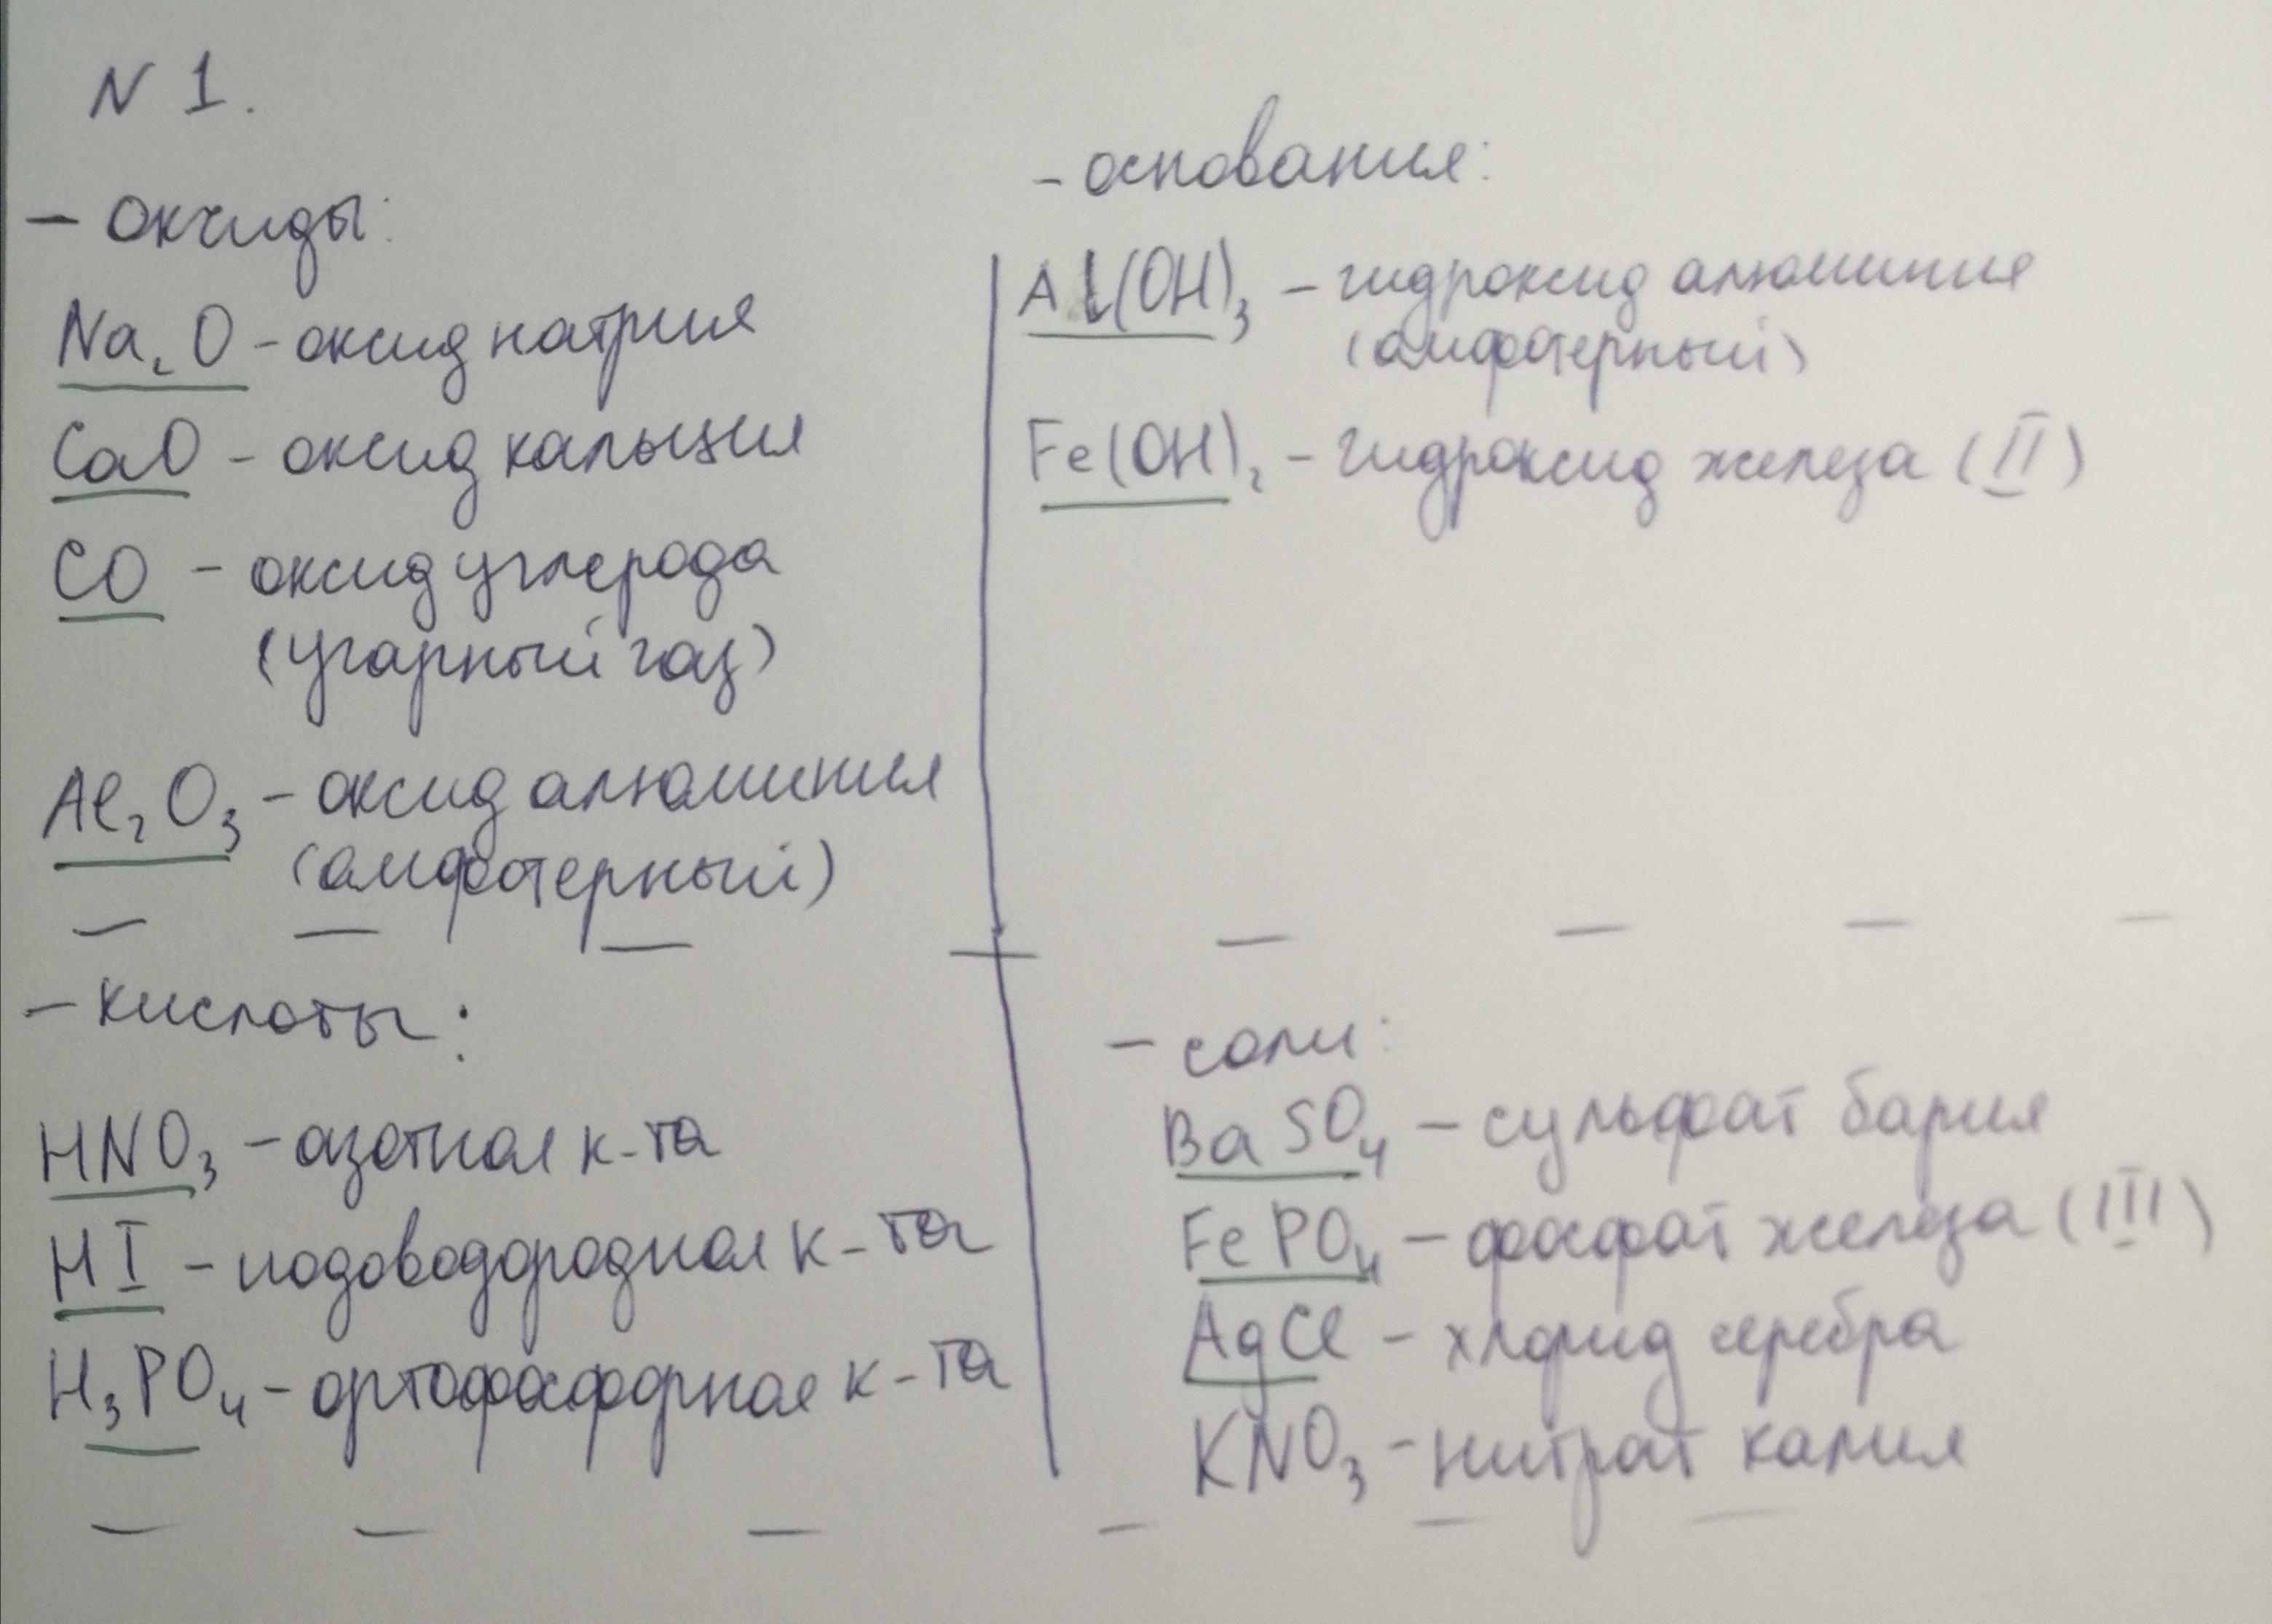 N 1.
- Оксиды:
Na₂O - оксид натрия
CaO - оксид кальция
CO - оксид углерода
(угарный газ)
Al₂O₃ - оксид алюминия
(амфотерный)
- кислоты:
HNO₃ - азотная к-та
HI - иодоводородная к-та
H₃PO₄ - ортофосфорная к-та
- основания:
Al(OH)₃ - гидроксид алюминия
(амфотерный)
Fe(OH)₂ - гидроксид железа (II)
- соли:
BaSO₄ - сульфат бария
FePO₄ - фосфат железа (III)
AgCl - хлорид серебра
KNO₃ - нитрат калия